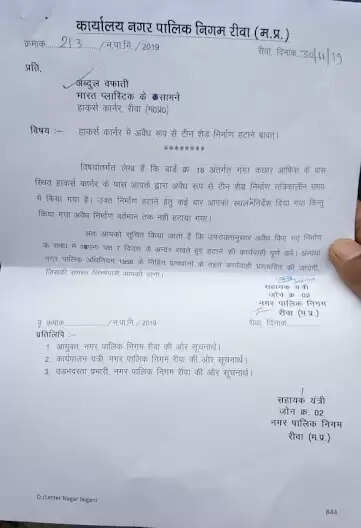 कार्यालय नगर पालिक निगम रीवा (म.प्र.)
क्रमांक 213 /न.पा.नि./2019
रीवा, दिनांक 30/11/19
प्रति,
अब्दुल वफाती
भारत प्लास्टिक के सामने
हाकर्स कार्नर, रीवा (म०प्र०)
विषय :- हाकर्स कार्नर में अवैध रूप से टीन शेड निर्माण हटाने बावत्।
********
विषयांतर्गत लेख है कि वार्ड क्र 16 अंतर्गत नगर आफिस के पास
स्थित हाकर्स कार्नर के पास आपके द्वारा अवैध रूप से टीन शेड निर्माण रात्रिकालीन समय
में किया गया है। उक्त निर्माण हटाने हेतु कई बार आपको स्थल निर्देश दिया गया किन्तु
किया गया अवैध निर्माण वर्तमान तक नहीं हटाया गया।
अतः आपको सूचित किया जाता है कि उपरोक्तानुसार अवैध किए गए निर्माण
के संबंध में दिवस के अन्दर स्वतः हटाने की कार्यवाही पूर्ण करें। अन्यथा
नगर पालिक अधिनियम 1956 के निहित प्रावधानों के तहत कार्यवाही प्रस्तावित की जाएगी,
जिसकी समस्त जिम्मेदारी आपकी होगी।
सहायक यंत्री
जोन क्र. 02
नगर पालिक निगम
रीवा (म.प्र.)
पृ. क्रमांक /न.पा.नि./2019
रीवा, दिनांक
प्रतिलिपि :-
1. आयुक्त, नगर पालिक निगम रीवा की ओर सूचनार्थ।
2. कार्यपालन यंत्री, नगर पालिक निगम रीवा की ओर सूचनार्थ।
3. प्रभारी, नगर पालिक निगम रीवा की ओर सूचनार्थ।
सहायक यंत्री
जोन क्र. 02
नगर पालिक निगम
रीवा (म.प्र.)
D:/Letter Nagar Nigam
644